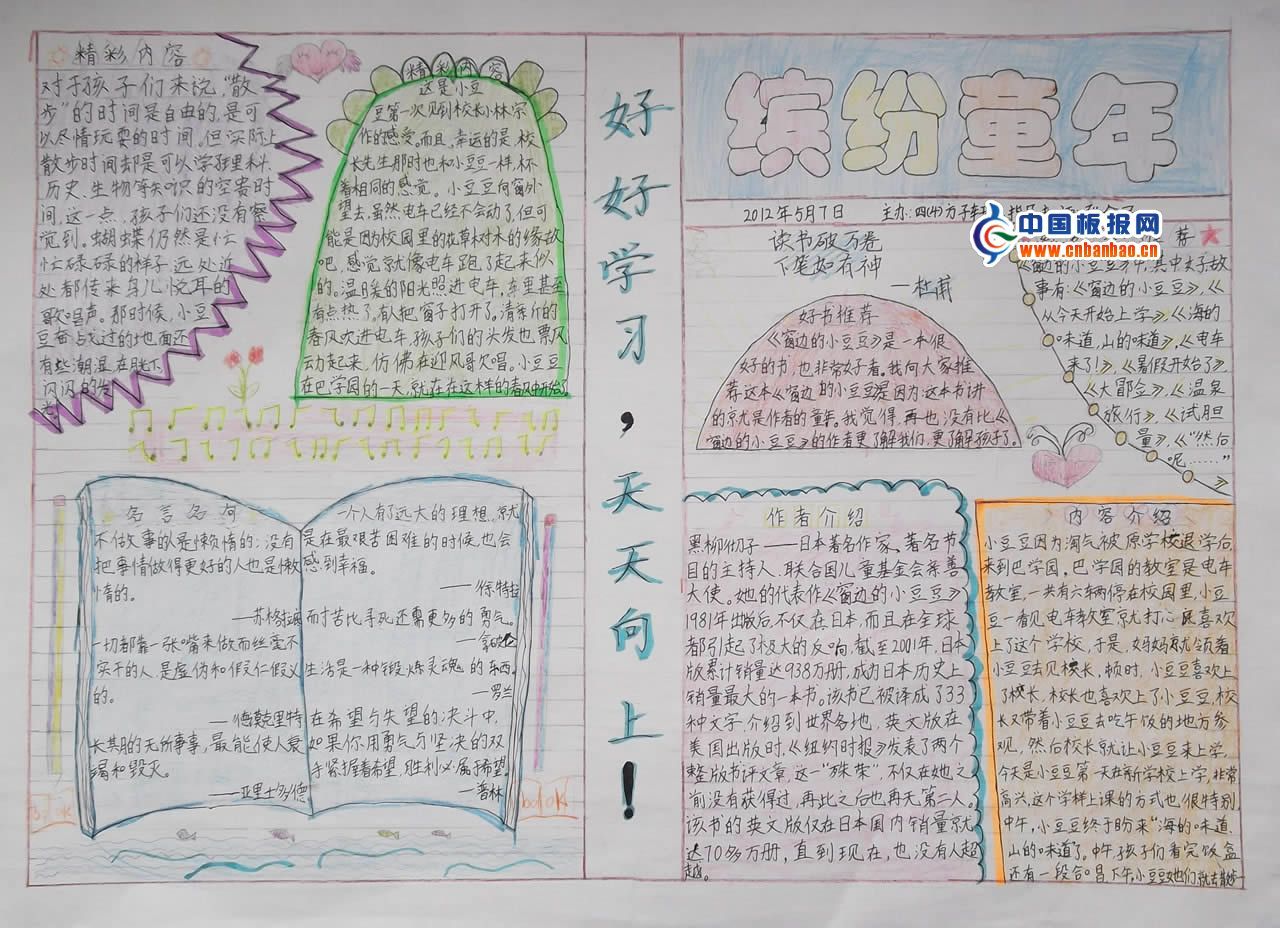 精彩内容
对于孩子们来说，“散
步”的时间是自由的，是可
以尽情玩耍的时间。但实际上
散步时间却是可以学到理科、
历史、生物等知识的宝贵时
间，这一点，孩子们还没有察
觉到。蝴蝶仍然是忙
忙碌碌的样子，远处近
处都传来鸟儿悦耳的
歌唱声。那时候，小豆
豆奋战过的地面还
有些潮湿，在
闪闪的
精彩内容
这是小豆
豆第一次见到校长小林宗
作的感觉。而且，幸运的是，校
长先生那时也和小豆豆一样，怀
着相同的感觉。小豆豆向窗外
望去，虽然电车已经不会动了，但可
能是因为校园里的花草树木的缘故
吧，感觉就像电车跑了起来似
的。温暖的阳光照进电车，车里甚至
有点热了。有人把窗子打开了。清新的
春风吹进电车，孩子们的头发也飘风
动起来，仿佛在迎风歌唱。小豆豆
在巴学园的一天，就在在这样的春风中开始了
名言名句
不做事的是懒惰的；没有
把事情做得更好的人也是懒
惰的。
——苏格拉底
一切都靠一张嘴来做而丝毫不
实干的人，是虚伪和假仁假义
的。
——德谟克里特
长期的无所事事，最能使人衰
竭和毁灭。
——亚里士多德
一个人有了远大的理想，就
是在最艰苦困难的时候，也会
感到幸福。
——徐特拉
而寸苦比寻死还需更多的勇气。
——拿破仑
生活是一种锻炼灵魂的东西。
——罗兰
在希望与失望的决斗中，
如果你用勇气与坚决的双
手紧握着希望，胜利必属于希望。
——普林
book
好好学习，天天向上！
缤纷童年
2012年5月7日 主办：四(4)方子轩
中国板报网
www.cnbanbao.cn
读书破万卷
下笔如有神
——杜甫
好书推荐
《窗边的小豆豆》是一本很
好的书，也非常好看。我向大家推
荐这本《窗边的小豆豆》是因为这本书讲
的就是作者的童年。我觉得，再也没有比《
窗边的小豆豆》的作者更了解我们，更了解孩子了。
荐
《窗边的小豆豆》中，其中夫子故
事有：《窗边的小豆豆》、《
从今天开始上学》、《海的
味道，山的味道》、《电车
来了！》、《暑假开始了》、
《大冒金》、《温泉
旅行》、《试胆
量》、《“然后
呢……”》
作者介绍
黑柳彻子——日本著名作家、著名节
目的主持人、联合国儿童基金会亲善
大使。她的代表作《窗边的小豆豆》
1981年出版后，不仅在日本，而且在全球
都引起了极大的反响，截至2001年，日本
版累计销量达938万册，成为日本历史上
销量最大的一本书。该书已被译成了33
种文字，介绍到世界各地，英文版在
美国出版时，《纽约时报》发表了两个
整版书评文章，这一“殊荣”，不仅在她之
前没有获得过，再此之后也再无第二人。
该书的英文版仅在日本国内销量就
达70多万册，直到现在，也没有人超
越。
内容介绍
小豆豆因为淘气被原学校退学后，
来到巴学园。巴学园的教室是电车
教室，一共有六辆停在校园里，小豆
豆一看见电车教室就打心里喜欢
上了这个学校，于是，妈妈就领着
小豆豆去见校长，顿时，小豆豆喜欢上
了校长，校长也喜欢上了小豆豆，校
长又带着小豆豆去吃午饭的地方参
观，然后校长就让小豆豆来上学，
今天是小豆豆第一天在新学校上学，非常
高兴，这个学样上课的方式也很特别，
中午，小豆豆终于盼来“海的味道、
山的味道”了。中午，孩子们看完饭盒
还有一段合唱，下午，小豆豆她们就去散步